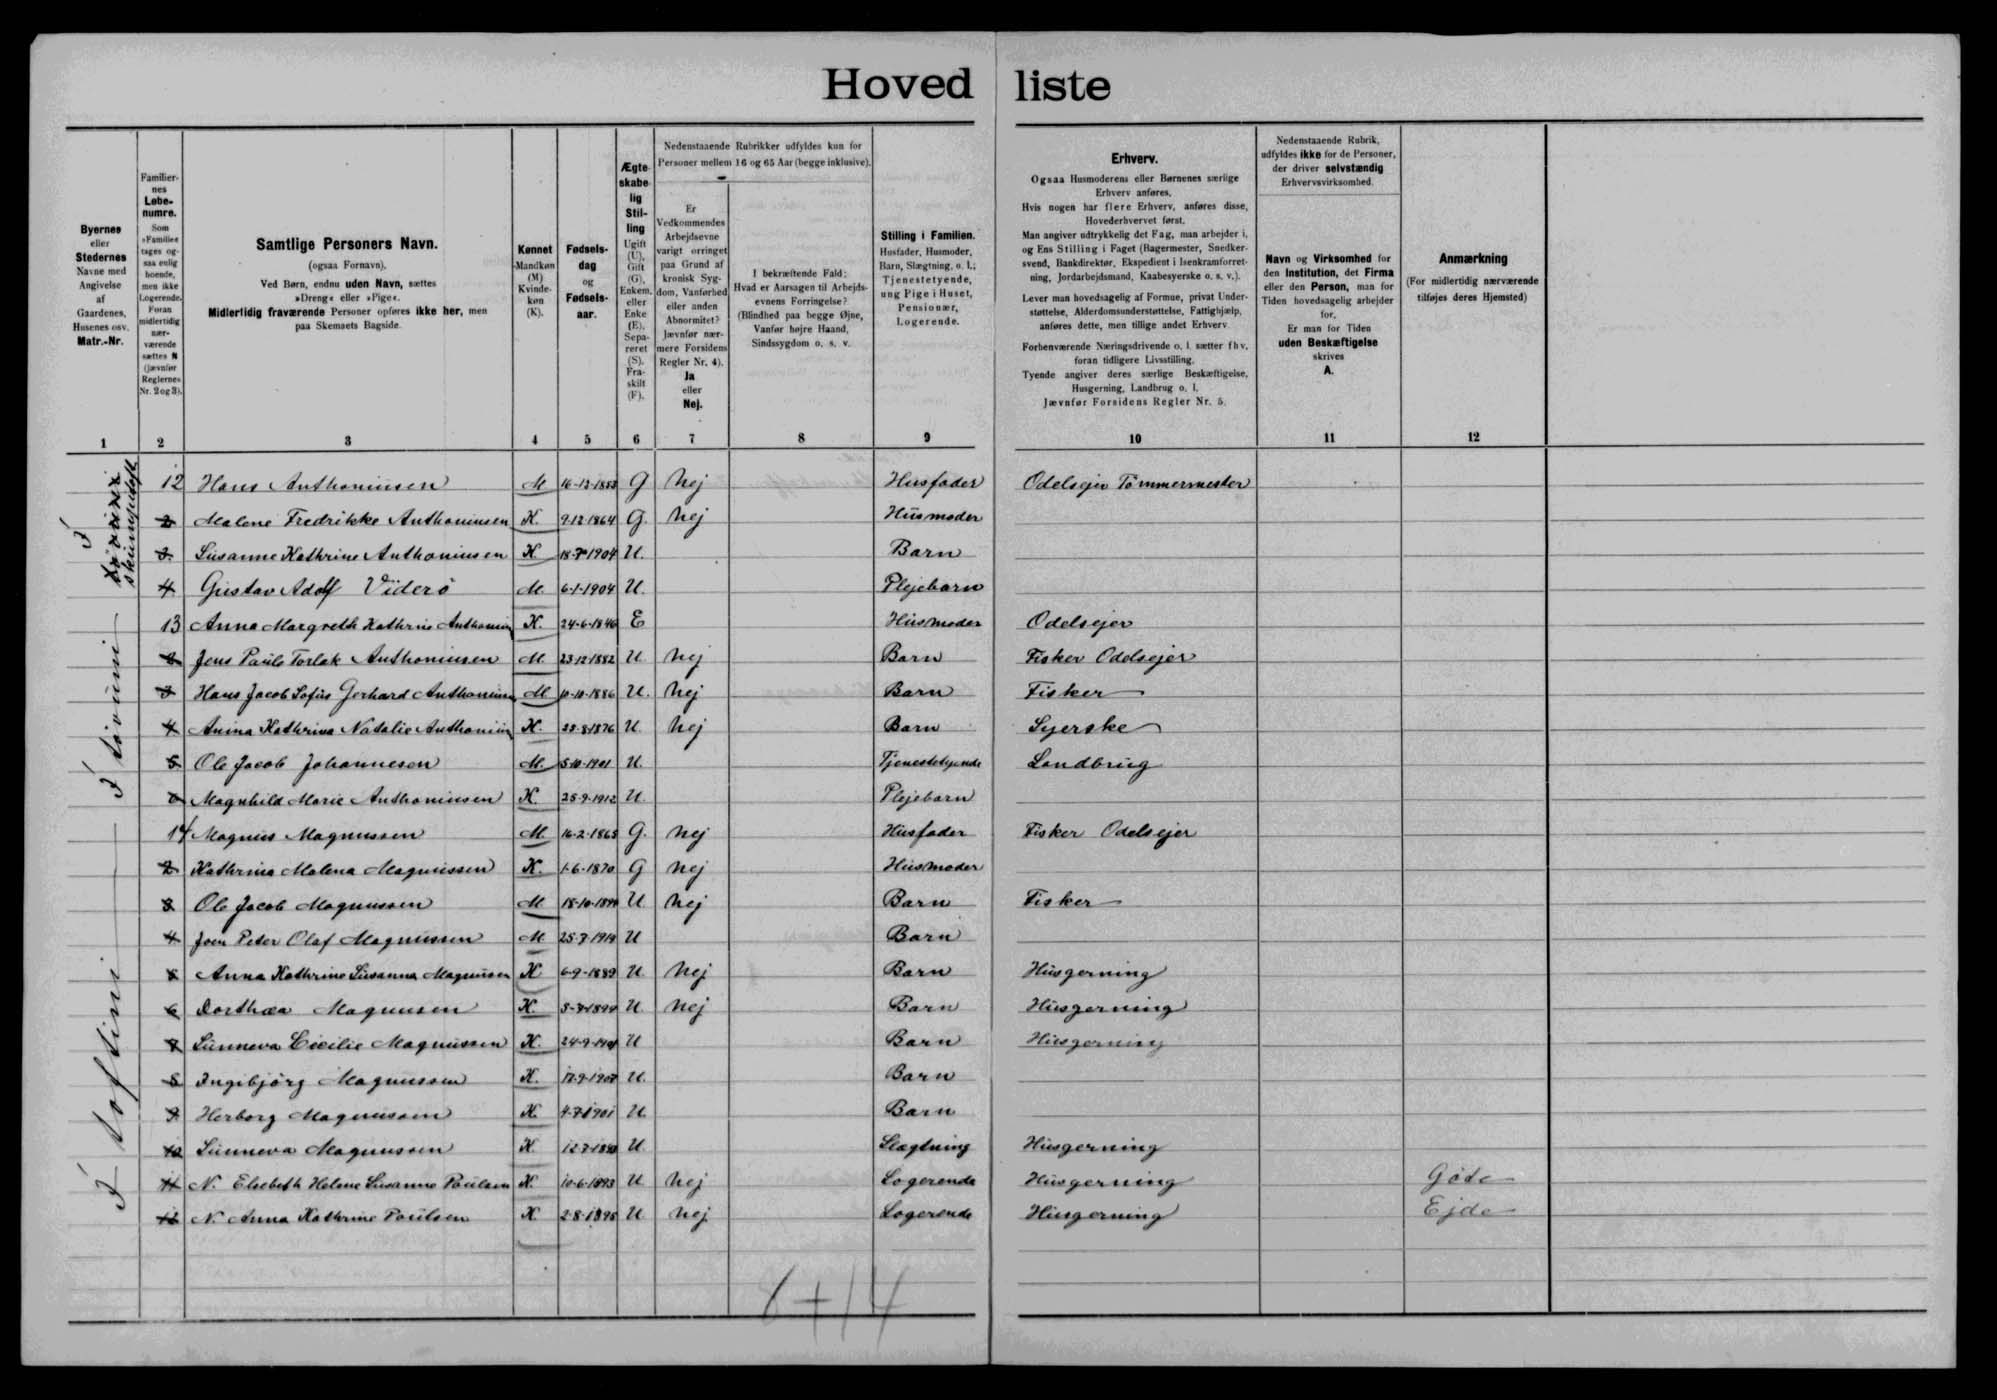 Hoved liste
Byernes
eller
Stedernes
Navne med
Angivelse
af
Gaardenes,
Husenes osv.
Matr.-Nr.
Familier-
nes
Løbe-
numre.
Som
»Familie«
tages og-
saa enlig
boende,
men ikke
Logerende.
Foran
midlertidig
nær-
værende
sættes N
(jævnfør
Reglernes
Nr. 2 og 3).
Samtlige Personers Navn.
(ogsaa Fornavn).
Ved Børn, endnu uden Navn, sættes
»Dreng« eller »Pige«.
Midlertidig fraværende Personer opføres ikke her, men
paa Skemaets Bagside.
Kønnet
Mandkøn
(M)
Kvinde-
køn
(K).
Fødsels-
dag
og
Fødsels-
aar.
Ægte-
skabe-
lig
Stil-
ling
Ugift
(U),
Gift
(G),
Enkem.
eller
Enke
(E),
Sepa-
reret
(S).
Fra-
skilt
(F).
Nedenstaaende Rubrikker udfyldes kun for
Personer mellem 16 og 65 Aar (begge inklusive).
Er
Vedkommendes
Arbejdsevne
varigt forringet
paa Grund af
kronisk Syg-
dom, Vanførhed
eller anden
Abnormitet?
Jævnfør nær-
mere Forsidens
Regler Nr. 4).
Ja
eller
Nej.
I bekræftende Fald:
Hvad er Aarsagen til Arbejds-
evnens Forringelse?
(Blindhed paa begge Øjne,
Vanfør højre Haand,
Sindssygdom o. s. v.
Stilling i Familien.
Husfader, Husmoder,
Barn, Slægtning, o. l.;
Tjenestetyende,
ung Pige i Huset,
Pensionær,
Logerende.
Erhverv.
Ogsaa Husmoderens eller Børnenes særlige
Erhverv anføres.
Hvis nogen har flere Erhverv, anføres disse,
Hovederhvervet først.
Man angiver udtrykkelig det Fag, man arbejder i,
og Ens Stilling i Faget (Bagermester, Snedker-
svend, Bankdirektør, Ekspedient i Isenkramforret-
ning, Jordarbejdsmand, Kaabesyerske o. s. v.).
Lever man hovedsagelig af Formue, privat Under-
støttelse, Alderdomsunderstøttelse, Fattighjælp,
anføres dette, men tillige andet Erhverv.
Forhenværende Næringsdrivende o. l. sætter fhv.
foran tidligere Livsstilling.
Tyende angiver deres særlige Beskæftigelse,
Husgerning, Landbrug o. l.
Jævnfør Forsidens Regler Nr. 5.
Nedenstaaende Rubrik,
udfyldes ikke for de Personer,
der driver selvstændig
Erhvervsvirksomhed.
Navn og Virksomhed for
den Institution, det Firma
eller den Person, man for
Tiden hovedsagelig arbejder
for.
Er man for Tiden
uden Beskæftigelse
skrives
A.
Anmærkning
(For midlertidig nærværende
tilføjes deres Hjemsted)
1 2 3 4 5 6 7 8 9 10 11 12
12 Hans Anthoniusen M 16-12-1853 G Nej Husfader Odelsejer Tømmermester
2 Malene Fredrikke Anthoniusen K. 9-12-1864 G. Nej Husmoder
3 Susanne Kathrine Anthoniusen K. 18-7-1904 U. Barn
4 Gustav Adolf Viderö M. 6-1-1904 U. Plejebarn
13 Anna Margreth Kathrine K. 24-6-1846 E Husmoder Odelsejer
2 Jens Paule Torlak Anthoniusen M. 23-12-1882 U Nej Barn Fisker Odelsejer
3 Hans Jacob Sofus Gerhard Anthoniusen M 10-10-1886 U. Nej Barn Fisker
4 Anina Kathrina Natalie K. 1876 U Nej Barn Syerske
5 Ole Jacob Johannesen M. 5-10-1901 U. Tjenestetyende Landbrug
6 Magnhild Marie Anthoniusen K. 25-9-1912 U. Plejebarn
14 Magnus Magnussen M. 16-2-1865 G. Nej Husfader Fisker Odelsejer
2 Kathrina Malena Magnussen K. 1-6-1870 G Nej Husmoder
3 Ole Jacob Magnussen M U Nej Barn Fisker
4 Joen Peter Olaf Magnussen M. U Barn
5 Anna Kathrine Susanna Magnussen K 6-9-1889 U. Nej Barn Husgerning
6 Dorthæa Magnussen K. U. Nej Barn Husgerning
7 Sunneva Cicilie Magnussen K. U Barn Husgerning
8 Ingibjörg Magnussen K. U. Barn
9 Herborg Magnussen K. U. Barn
10 Sunneva Magnussen K. U. Slægtning Husgerning
11 N. Elsebeth Helene Susanne Poulsen K. 10-6-1893 U Nej Logerende Husgerning Göte
12 N. Anna Kathrine Poulsen K. 2-8-1898 U Nej Logerende Husgerning Ejde
8+14